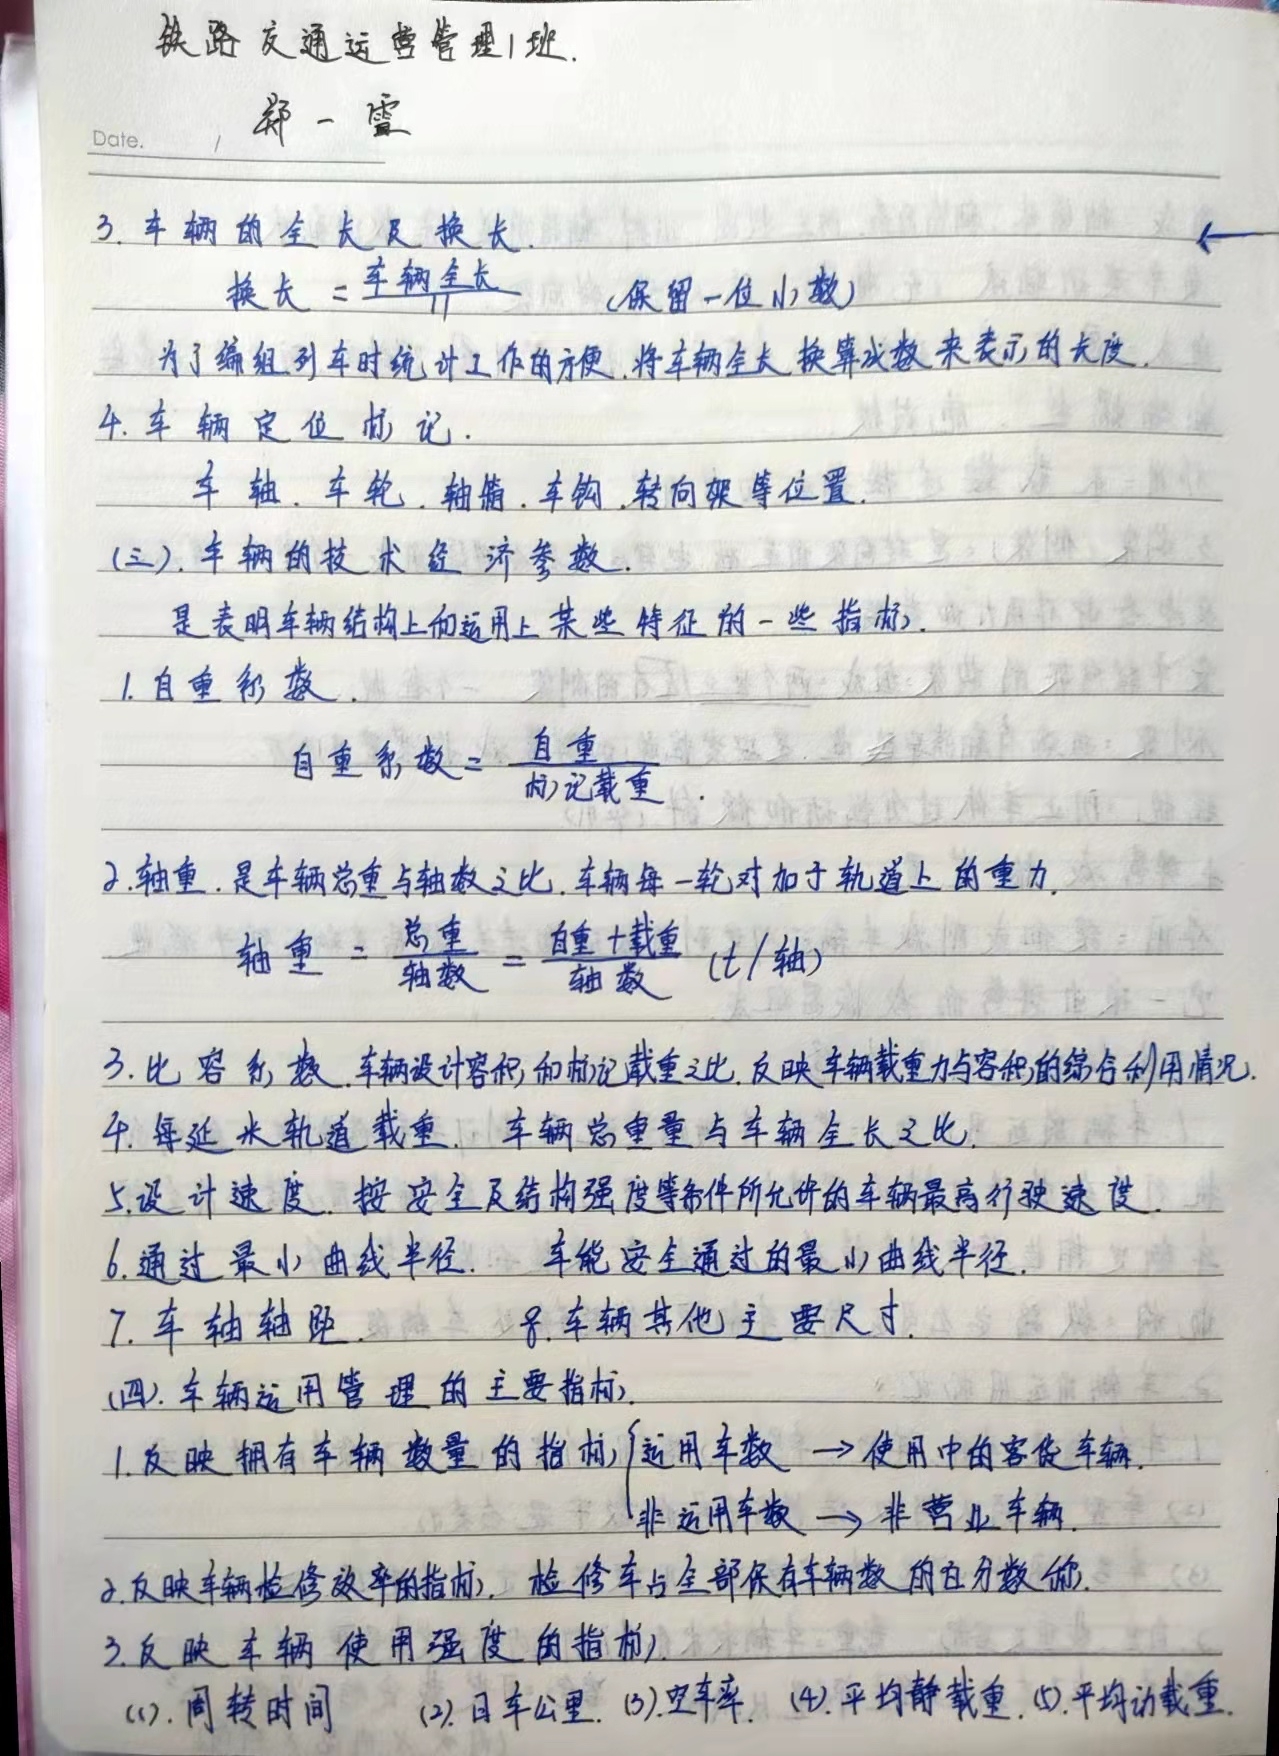 铁路交通运营管理1班.
郑一雪
Date. /
3. 车辆的全长及换长.
换长 = 车辆全长/11 (保留一位小数)
为了编组列车时统计工作的方便.将车辆全长换算成数来表示的长度.
4. 车辆定位标记.
车轴.车轮.轴箱.车钩.转向架等位置.
(三).车辆的技术经济参数.
是表明车辆结构上和运用上某些特征的一些指标.
1.自重系数.
自重系数 = 自重/标记载重.
2.轴重.是车辆总重与轴数之比.车辆每一轮对加于轨道上的重力.
轴重 = 总重/轴数 = 自重+载重/轴数 (t/轴)
3.比容系数.车辆设计容积和标记载重之比.反映车辆载重力与容积的综合利用情况.
4.每延米轨道载重.车辆总重量与车辆全长之比.
5.设计速度.按安全及结构强度等条件所允许的车辆最高行驶速度.
6.通过最小曲线半径.车能安全通过的最小曲线半径.
7.车轴轴距. 8.车辆其他主要尺寸.
(四).车辆运用管理的主要指标.
1.反映拥有车辆数量的指标{运用车数→使用中的客货车辆.
非运用车数→非营业车辆.
2.反映车辆检修效率的指标.检修车占全部保有车辆数的百分数
3.反映车辆使用强度的指标.
(1).周转时间 (2).日车公里. (3).空车率. (4).平均静载重. (5).平均动载重.